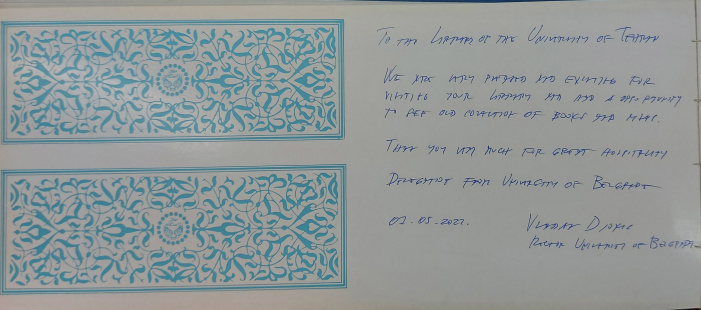 To the Library of the University of Tehran
We are very pleased and exciting for
visiting your library and and a opportunity
to see old collection of books and
Thank you very much for great hospitality
Delegation from University of Belgrade
03.05.2022.
Vladan Djokic
Rector University of Belgrade